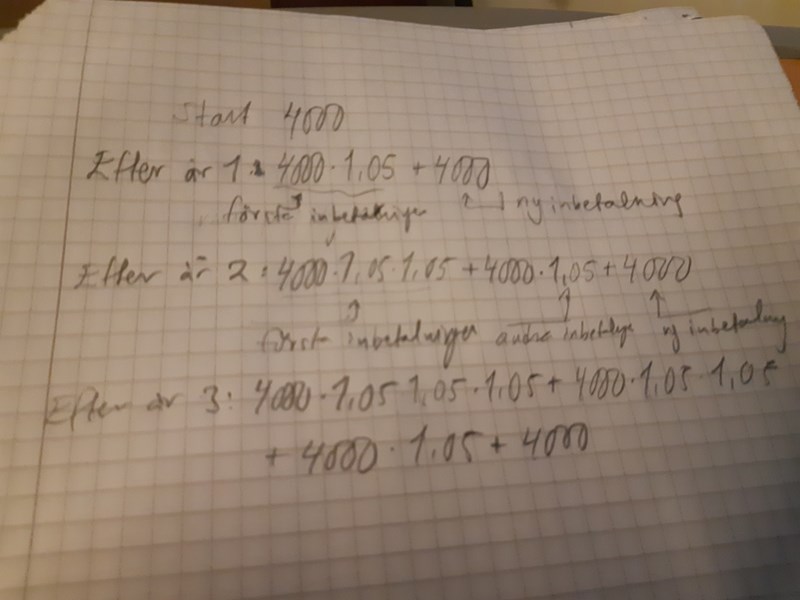 Start 4000
Efter år 1: 4000 · 1,05 + 4000
första inbetalningen ny inbetalning
Efter år 2: 4000 · 1,05 · 1,05 + 4000 · 1,05 + 4000
första inbetalningen andra inbetalnge ny inbetalning
Efter år 3: 4000 · 1,05 1,05 · 1,05 + 4000 · 1,05 · 1,05
+ 4000 · 1,05 + 4000